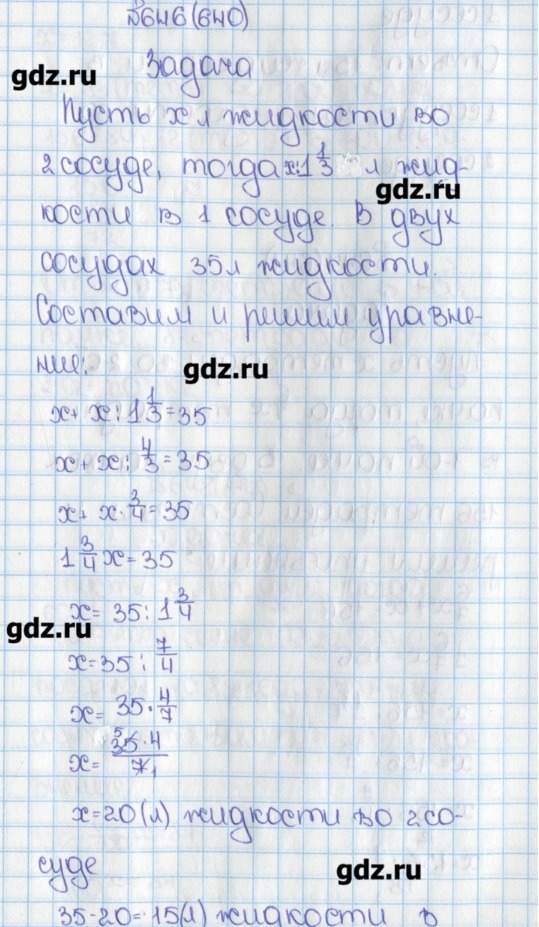 №646(640)
gdz.ru
Задача
Пусть x л жидкости во
2 сосуде, тогда x:1 1/3 л жид-
gdz.ru
кости в 1 сосуде. В двух
сосудах 35л жидкости.
Составим и решим уравне-
ние:
gdz.ru
x+x:1 1/3=35
x+x:4/3=35
x+x·3/4=35
1 3/4 x=35
x=35:1 3/4
gdz.ru
x=35:7/4
x=35·4/7
x=35·4/7 5 1
x=20(л) жидкости во 2 со-
суде
gdz.ru
35-20=15(л) жидкости в